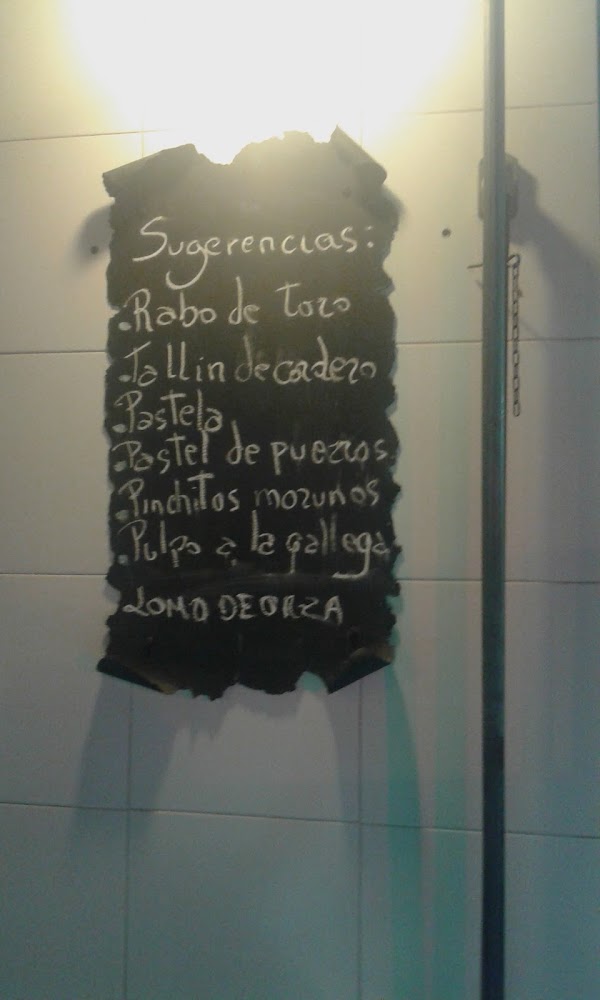 Sugerencias:
.Rabo de Toro
.Tallin de cordero
.Pastela
.Pastel de puerros
.Pinchitos morunos
.Pulpo a la gallega
LOMO DE ORZA